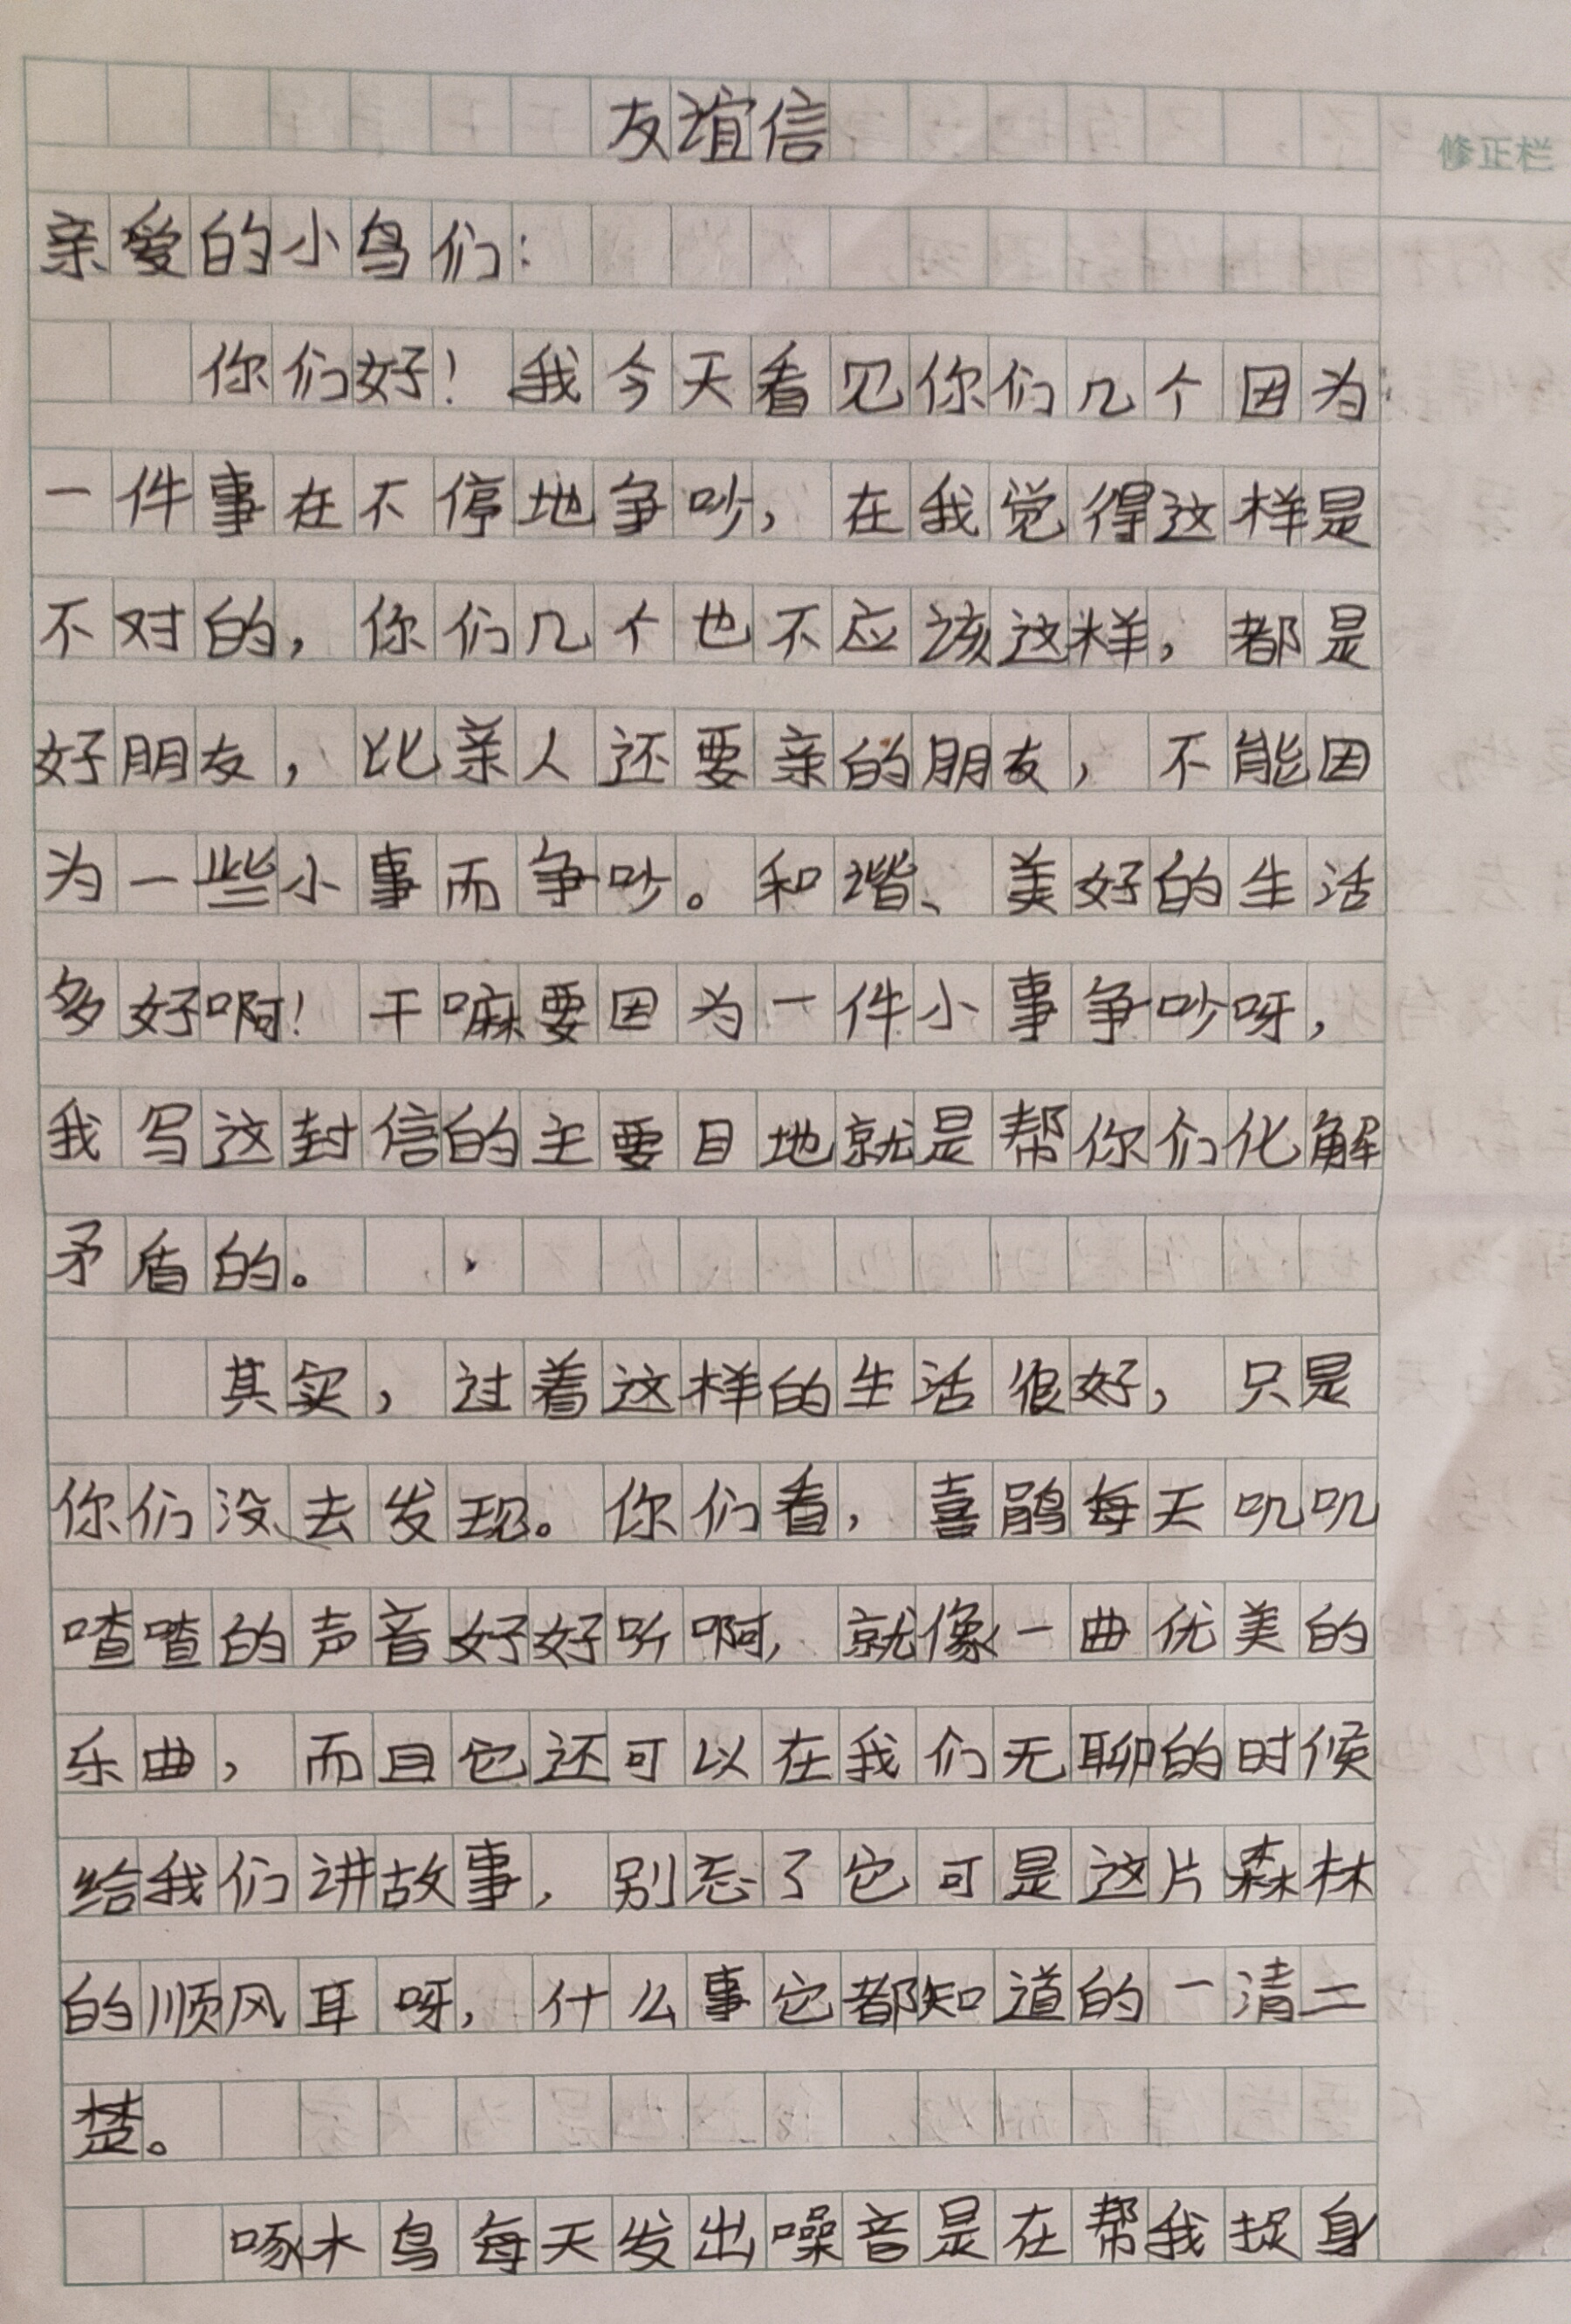 友谊信
修正栏
亲爱的小鸟们：
你们好！我今天看见你们几个因为
一件事在不停地争吵，在我觉得这样是
不对的，你们几个也不应该这样，都是
好朋友，比亲人还要亲的朋友，不能因
为一些小事而争吵。和谐、美好的生活
多好啊！干嘛要因为一件小事争吵呀，
我写这封信的主要目地就是帮你们化解
矛盾的。
其实，过着这样的生活很好，只是
你们没去发现。你们看，喜鹃每天叽叽
喳喳的声音好好听啊，就像一曲优美的
乐曲，而且它还可以在我们无聊的时候
给我们讲故事，别忘了它可是这片森林
的顺风耳呀，什么事它都知道的一清二
楚。
啄木鸟每天发出噪音是在帮我捉身